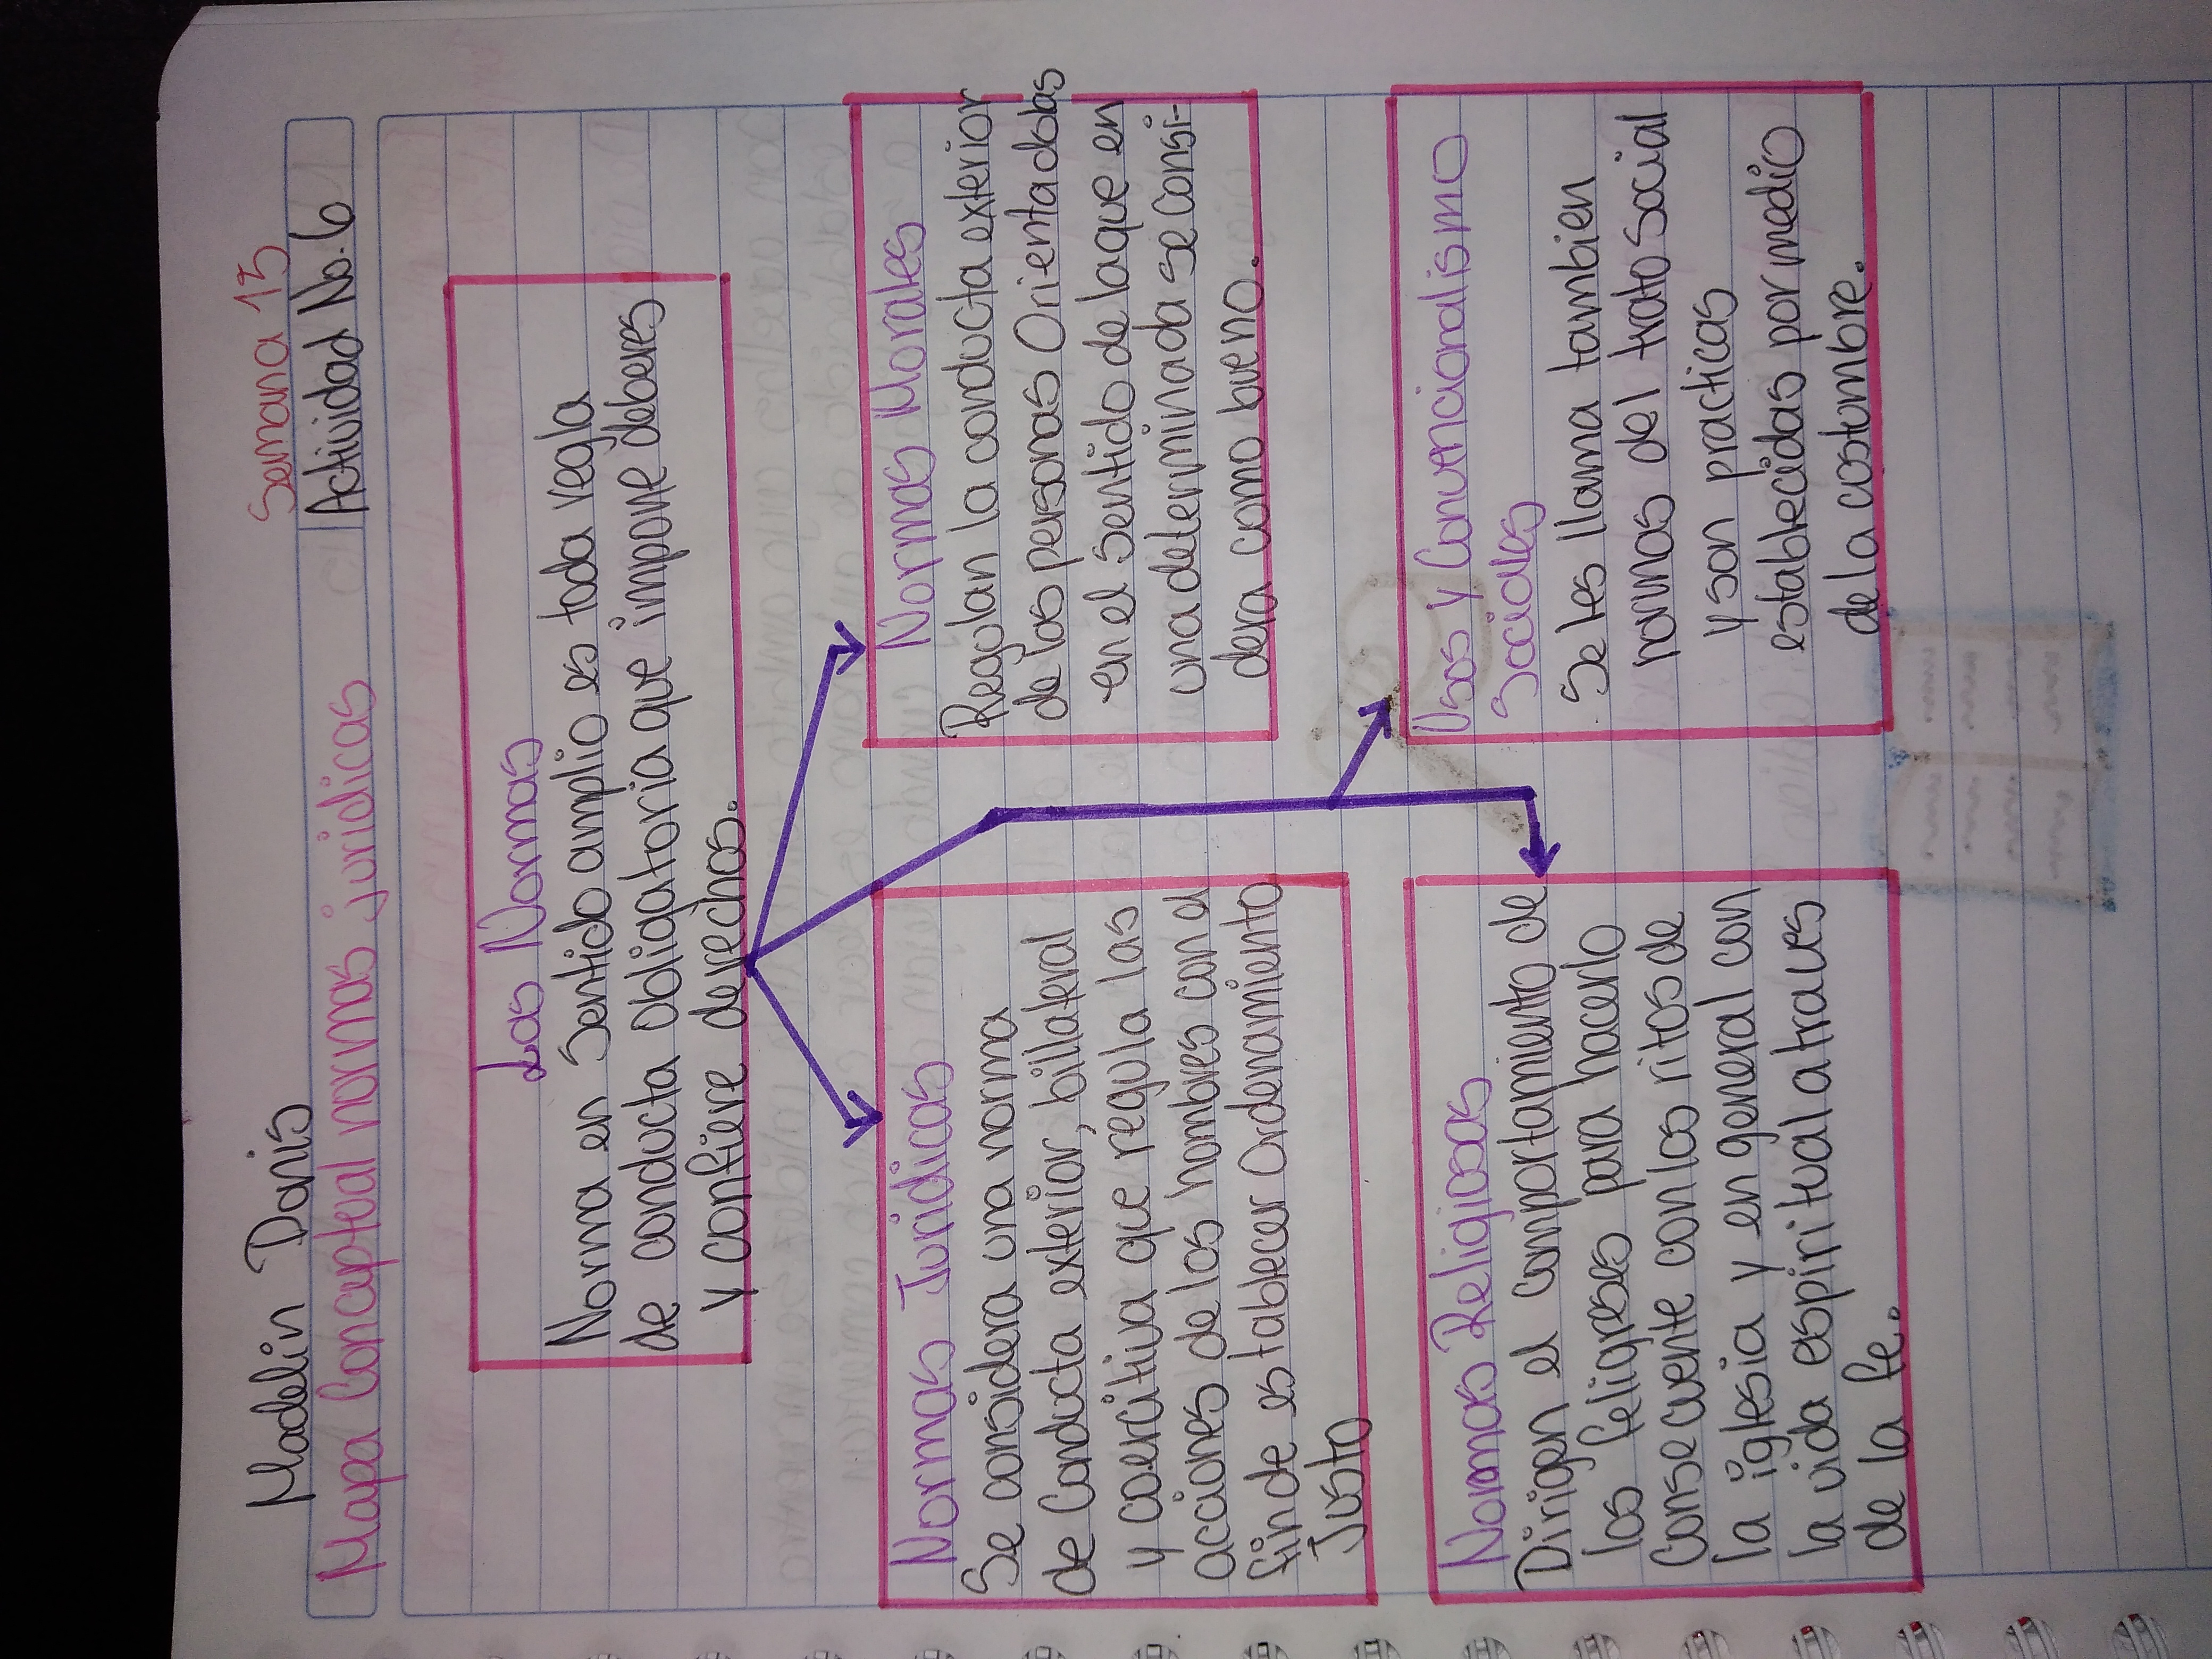 Madelin Donis
Semana 15
Mapa Conceptual normas juridicas
Actividad No. 6
Las Normas
Norma en Sentido amplio es toda regla
de conducta obligatoria que impone deberes
y confiere derechos.
Normas Juridicas
Se considera una norma
de Conducta exterior, billateral
y coercitiva que regula las
acciones de los hombres con el
fin de establecer Ordenamiento
Justo
Normas Morales
Regulan la conducta exterior
de las personas Orientadolas
en el sentido de la que en
una determinnada se consi-
dera como bueno.
Normas Religiosas
Dirigen el comportamiento de
los feligreses para hacerlo
Consecuente con los ritos de
la iglesia y en general con
la vida espiritual a traves
de la fe.
Usos y Convencionalismo
Sociales
Se les llama tambien
normas del trato social
y son practicas
establecidas por medio
de la costumbre.